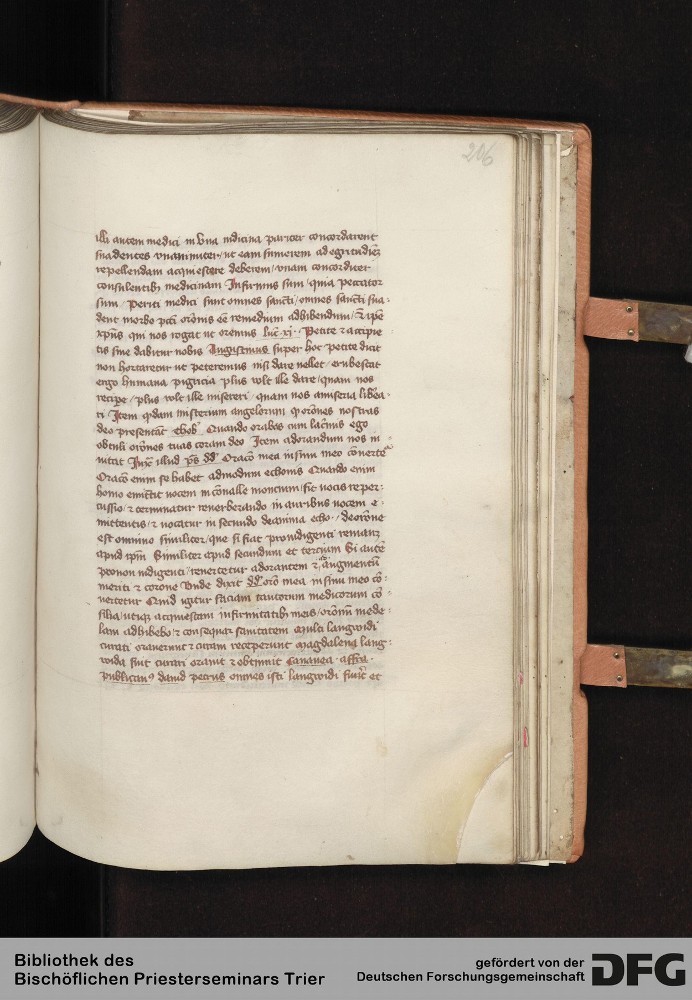 206
illi autem medici in vna medicina pariter concordarent
suadentes vnanimiter / ut eam sumerem ad egritudinē
repellendam acquiescere deberem / vnam concorditer
consulentibꝫ medicinam Infirmus sum / quia peccator
sum / Periti medici sunt omnes sancti / omnes sancti sua-
dent morbo pcti orōnis eē remedium adhibendum / ⁊ ipē
xpūs qui nos rogat ut oremus luc xi · Petite ⁊ accipie
tis siue dabitur nobis Augustinus super hoc petite dicit
non hortaretur ut peteremus nisi dare vellet / erubescat
ergo humana pigricia plus volt ille dare / quam nos
recipe / plus volt ille misereri / quam nos a miseria libera-
ri Item qdam misterium angelorum q orōnes nostras
deo presentāt thob Quando orabas cum lacrimis ego
obtuli orōnes tuas coram deo Item adorandum nos in-
uitat illud ps dd Oracō mea in sinu meo conuertet
Oracō enim se habet ad modum echonis Quando enim
homo emittit vocem in cōualle moncium / fit vocis reper-
cussio / ⁊ terminatur reuerberando in auribus vocem e-
mittentis / ⁊ vocatur in secundo de anima echo · / de orōne
est omnino similiter / que si fiat pro indigenti
apud ipm Similiter apud secundum et tercium Si autē
pro non indigenti / reuertetur adorantem ⁊ augmentū
meriti ⁊ corone Vnde dixit dd orō mea in sinu meo cō-
uertetur Quid igitur faciam tantorum medicorum cō-
silia / utiqꝫ acquiescam infirmitatibꝫ meis / orōnū mede-
lam adhibebo / ⁊ consequar sanitatem Multi langwidi
curati orauerunt ⁊ curam receperunt Magdalena lang-
wida fuit curari orauit ⁊ obtinuit Cananea · affra ·
publicanꝰ dauid petrus omnes isti langwidi fuerūt et
Bibliothek des
Bischöflichen Priesterseminars Trier
gefördert von der
Deutschen Forschungsgemeinschaft
DFG